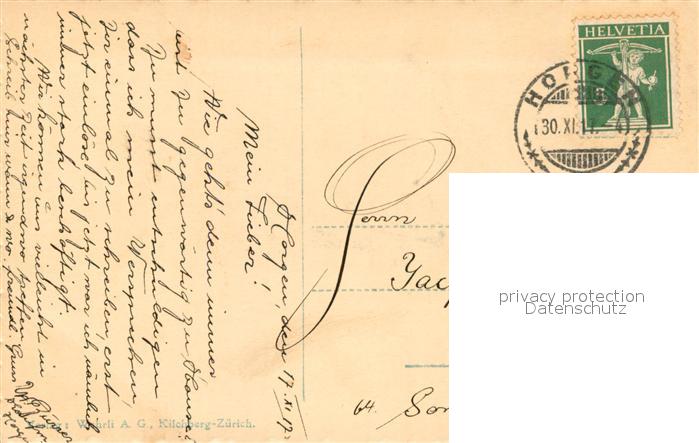 HELVETIA
HORGEN
30.XI.11.
Horgen, den 17. XI. 12.
Mein Lieber!
Wie geht's denn immer
und Du gegenwärtig zu Hause?
Du musst entschuldigen
dass ich mein Versprechen,
Dir einmal zu schreiben, erst
jetzt einlöse, bis jetzt war ich nämlich
immer stark beschäftigt.
Wir können uns vielleicht in
nächster Zeit irgendwo treffen.
Schreib kurz wann & wo. Freundl. Gruss
Herrn
Jac
64. Son
Verlag: Wehrli A. G., Kilchberg-Zürich.
privacy protection
Datenschutz